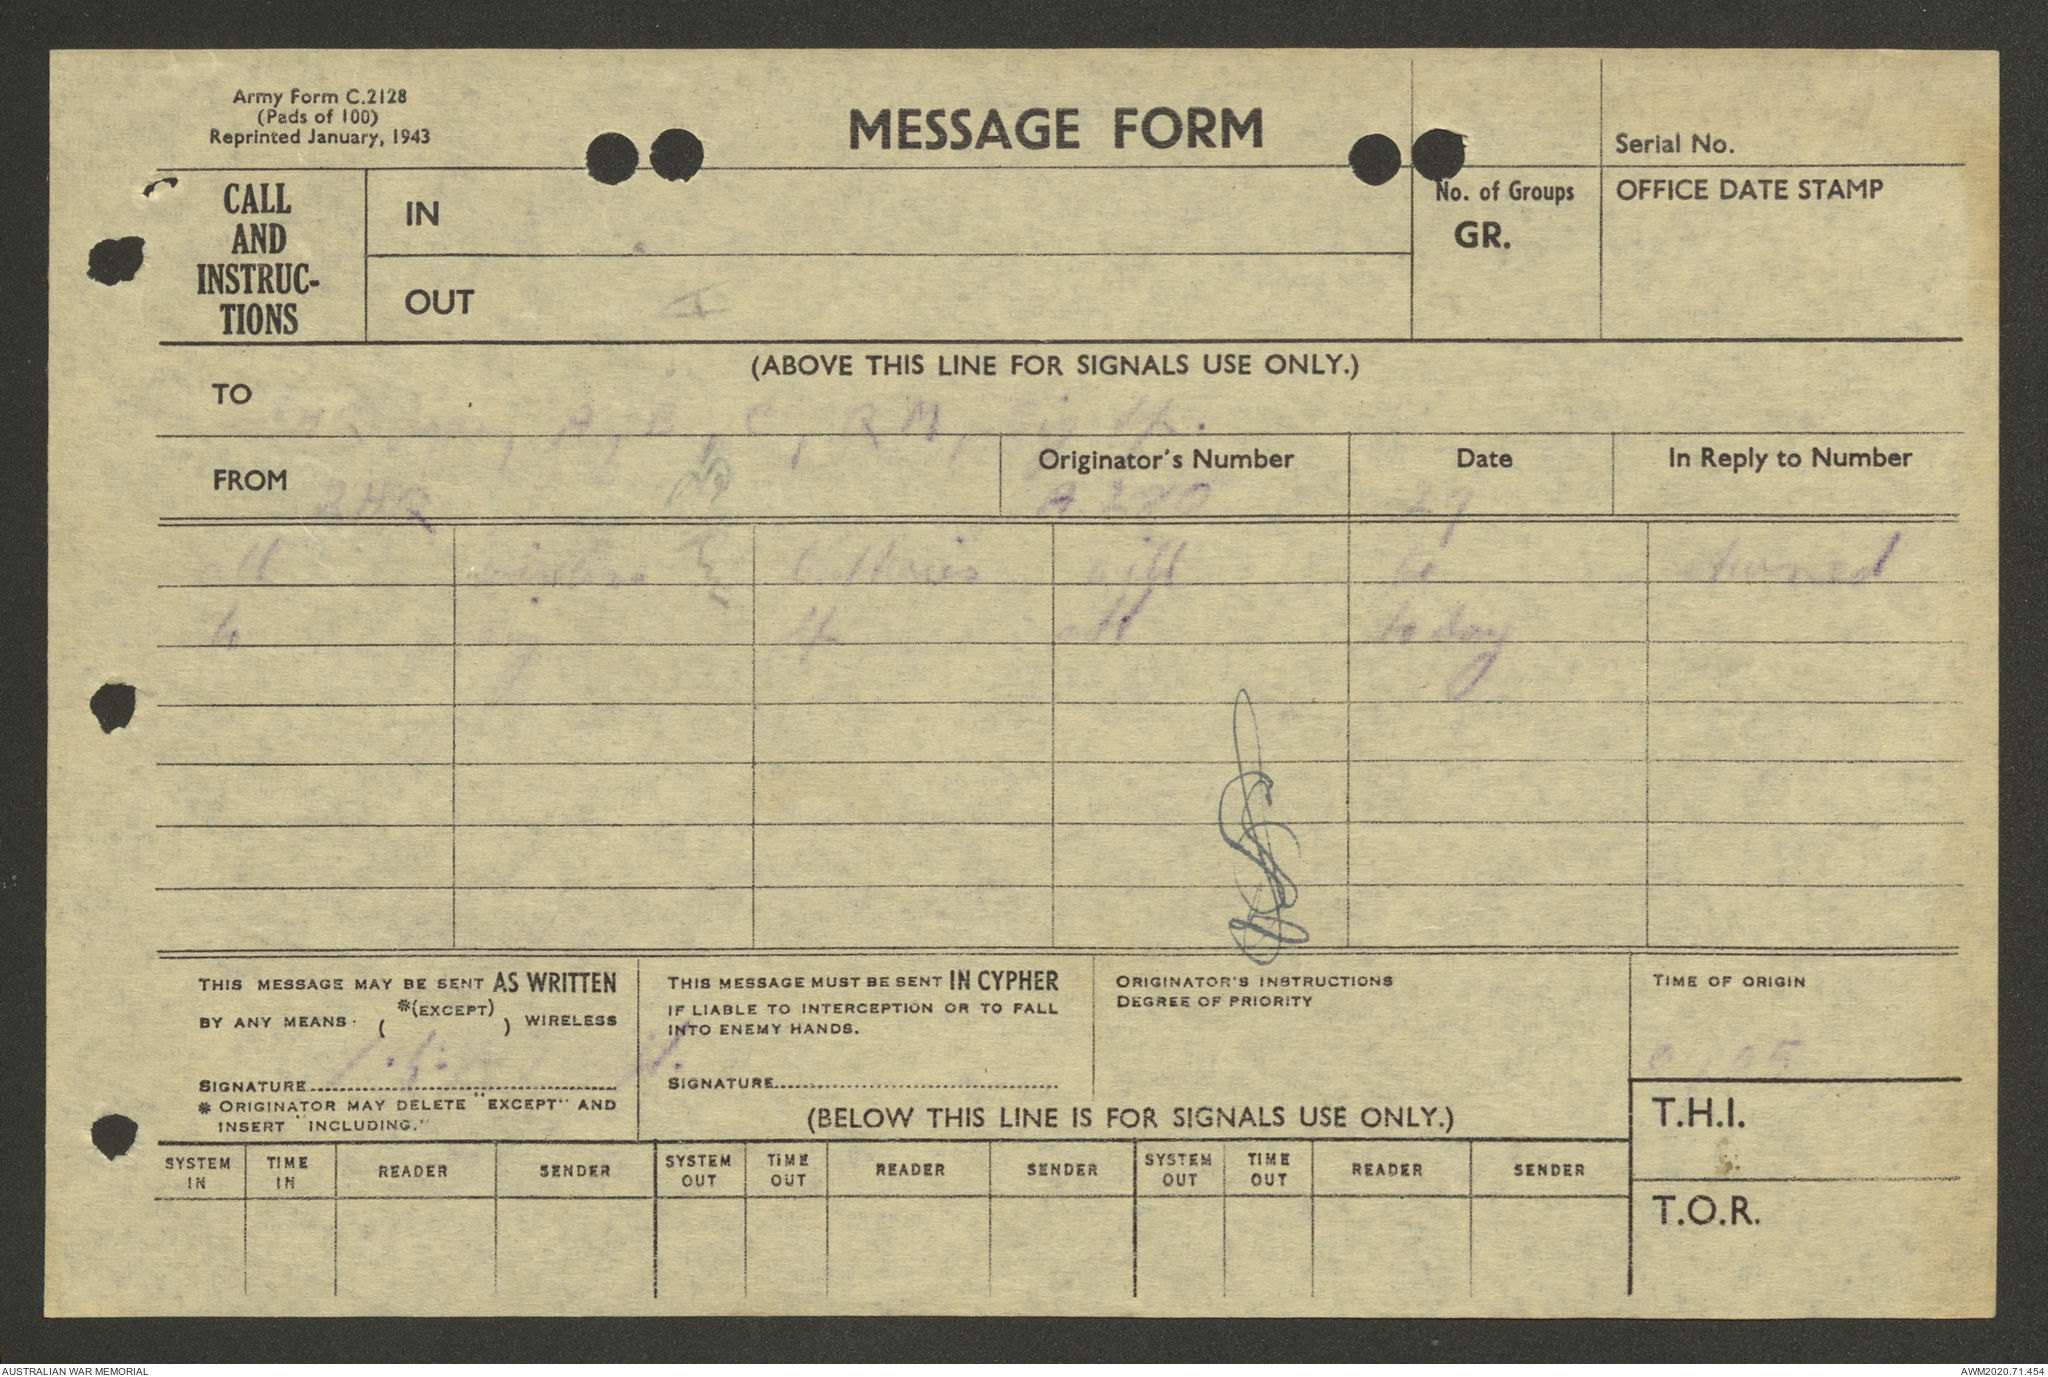 Army Form C.2128
(Pads of 100)
Reprinted January, 1943
MESSAGE FORM
Serial No.
CALL
AND
INSTRUC-
TIONS
IN
OUT
No. of Groups
GR.
OFFICE DATE STAMP
(ABOVE THIS LINE FOR SIGNALS USE ONLY.)
TO
A, B, C, RM,
FROM
BHQ
Originator's Number
Date
In Reply to Number
29
all batteries will be
to all today
THIS MESSAGE MAY BE SENT AS WRITTEN
BY ANY MEANS. ( *(EXCEPT) ) WIRELESS
SIGNATURE
* ORIGINATOR MAY DELETE "EXCEPT" AND
INSERT "INCLUDING."
THIS MESSAGE MUST BE SENT IN CYPHER
IF LIABLE TO INTERCEPTION OR TO FALL
INTO ENEMY HANDS.
SIGNATURE
ORIGINATOR'S INSTRUCTIONS
DEGREE OF PRIORITY
TIME OF ORIGIN
(BELOW THIS LINE IS FOR SIGNALS USE ONLY.)
T.H.I.
T.O.R.
SYSTEM IN
TIME IN
READER
SENDER
SYSTEM OUT
TIME OUT
READER
SENDER
SYSTEM OUT
TIME OUT
READER
SENDER
AUSTRALIAN WAR MEMORIAL
AWM2020.71.454